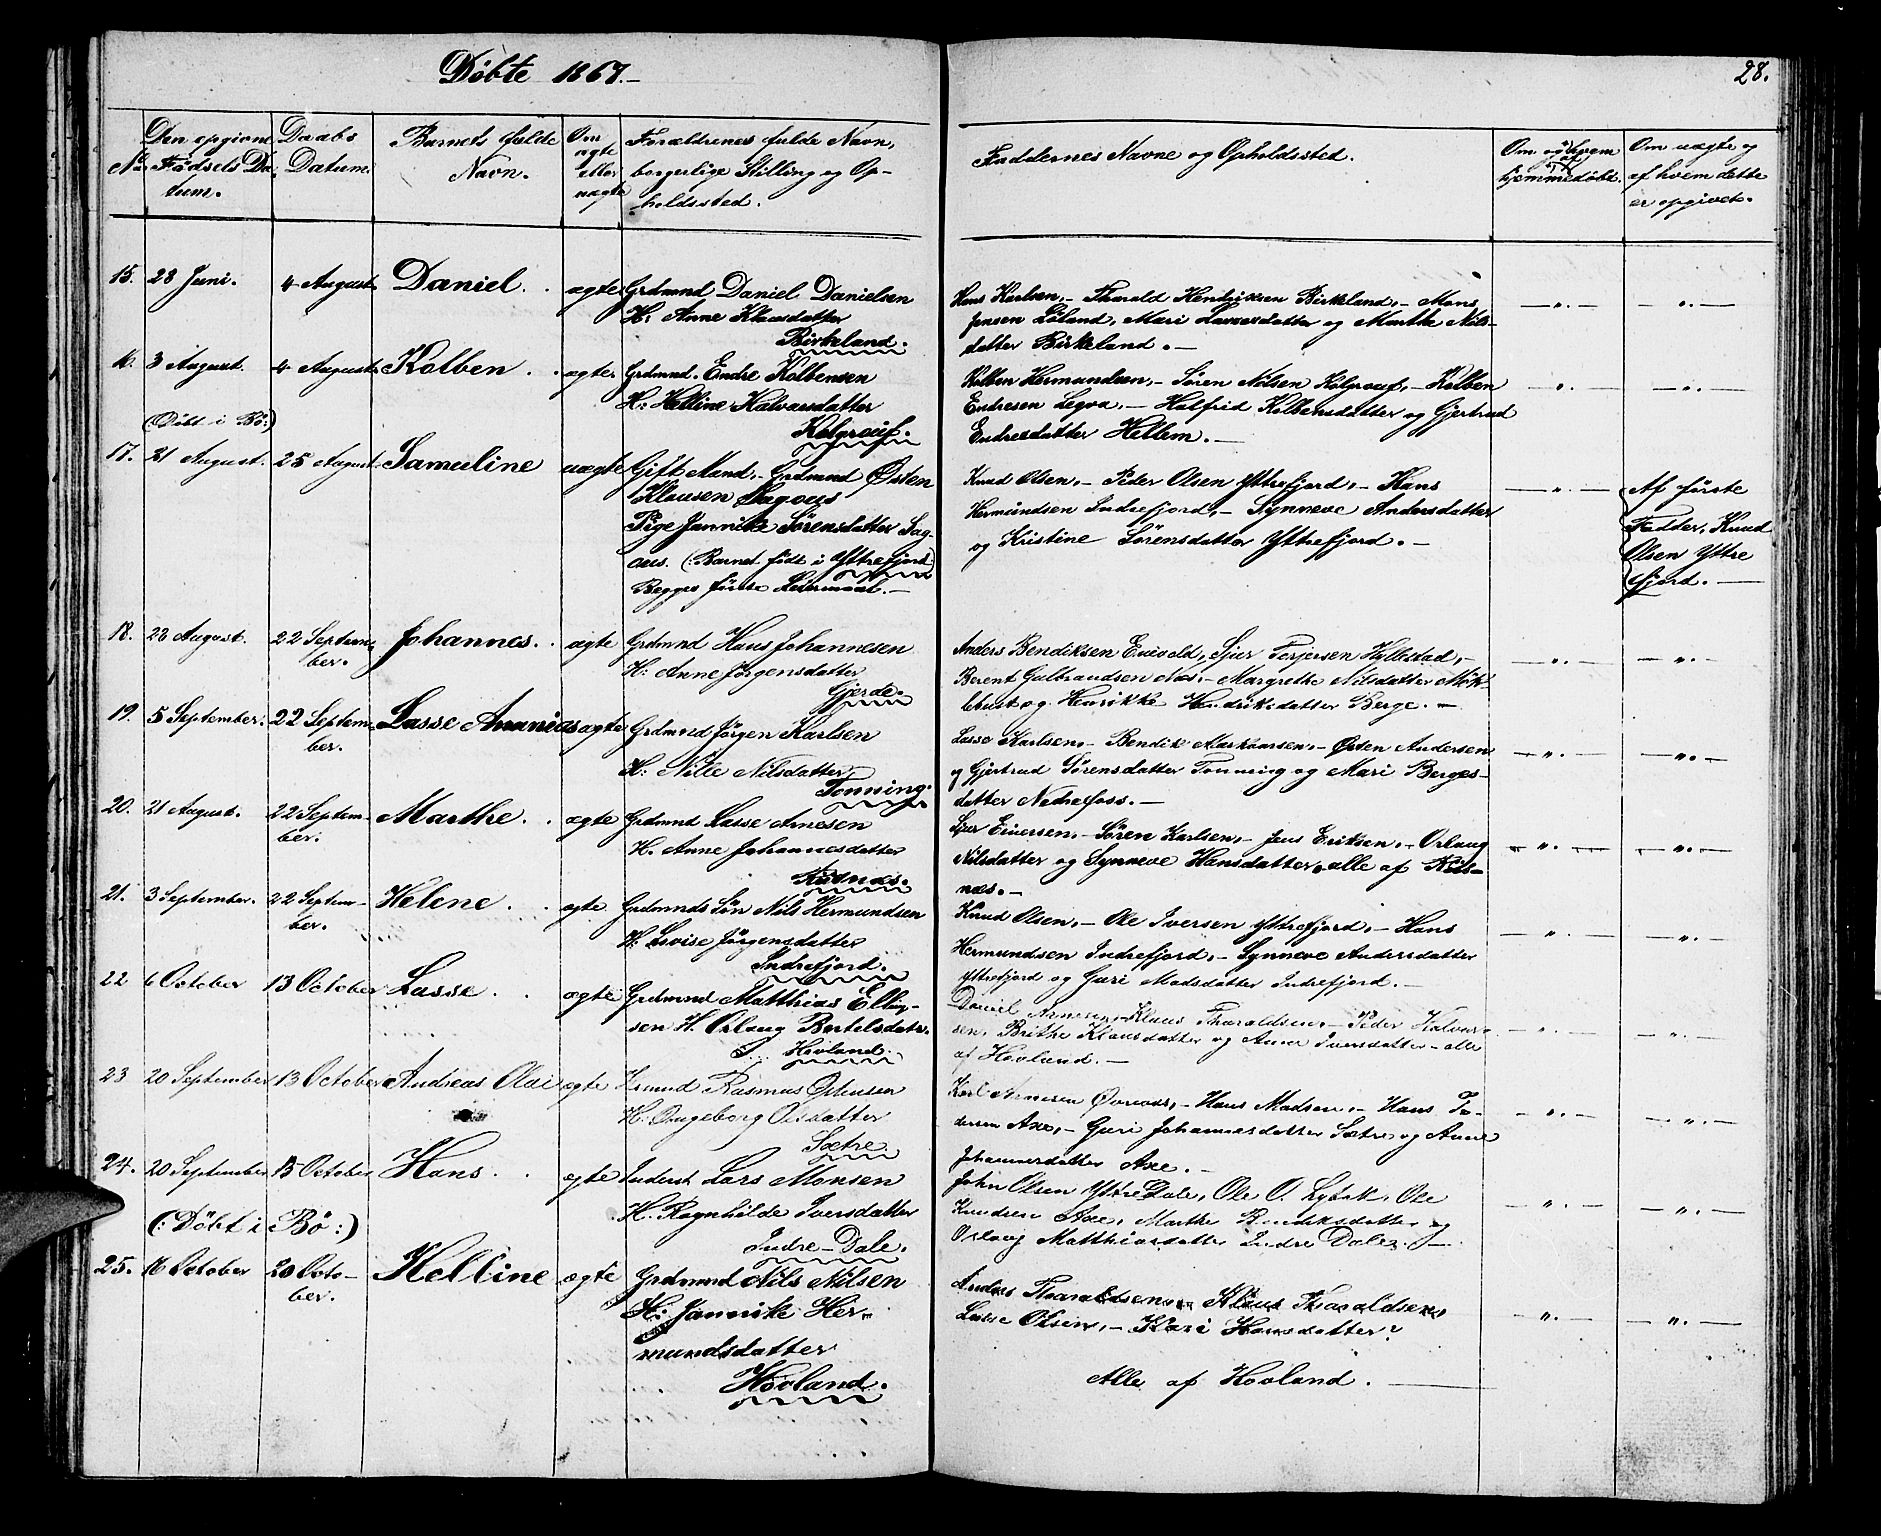 Døbte 1867.
28.
No.
Den opgivne
Fødsels Da-
tum.
Daabs
Datum.
Barnets fulde
Navn.
Om
ægte
eller
uægte
Forældrenes fulde Navn,
borgerlige Stilling og Op-
holdssted.
Faddernes Navne og Opholdssted.
Om og af hvem
hjemmedøbt.
Om uægte og
af hvem dette
er opgivet.
15. 28 Juni. 4 August Daniel. ægte Grdmnd Daniel Danielsen
H: Anne Klausdatter
Birkeland.
Hans Karlsen, Tharald Henriksen Birkeland, Mons
Jensen Löland, Mari Larsesdatter og Marthe Nils-
datter Birkeland.
16. 3 August. 4 August Kolben. ægte Grdmnd. Endre Kolbensen
(Døbt i Bø:)
H: Helline Halvarsdatter
Kolgrouf.
Kolben Hermundsen, Søren Nilsen Kolgrouf, Kolben
Endresen Legva, Halfrid Kolbensdatter og Gjertrud
Endresdatter Hellem.
17. 21 August. 25 August Samuline uægte Gift Mand, Grdmnd Østen
Klausen Sagous
Pige Jannike Sørensdatter Sag-
ous. (: Barnet føde i Yttrefjord)
Begges første Leiermaal.
Knud Olsen, Peder Olsen Yttrefjord, Hans
Hermundsen Indrefjord, Synneve Andersdatter
og Kristine Sørensdatter Yttrefjord.
Af første
Fadder, Knud
Olsen Yttre
fjord.
18. 22 August. 22 Septem-
ber. Johannes. ægte Grdmnd Hans Johannesen
H: Anne Jørgensdatter
Gjerde.
Anders Bendiksen Eivold, Sjur Terjersen Hyllestad,
Berent Gulbrandsen Næs, Margrethe Nilsdatter Møk-
lebust og Henrikke Hendriksdatter Berge.
19. 5 September. 22 Septem-
ber. Lasse Ananias ægte Grdmnd Jørgen Karlsen
H: Nille Nilsdatter
Tonning.
Lasse Karlsen, Bendik Markussen, Østen Andersen
og Gjertrud Sørensdatter Tonning og Mari Berges-
datter Nedrefoss.
20. 21 August. 22 Septem-
ber. Marthe. ægte Grdmnd Lasse Arnesen
H. Anne Johannesdatter
Risnæs.
Sjur Eiversen, Søren Karlsen, Jens Eriksen, Orlaug
Nilsdatter og Synneve Hansdatter, alle af Ris-
næs.
21. 3 September. 22 Septem-
ber. Helene. ægte Grdmnds Søn Nils Hermundsen
H: Lovise Jørgensdatter
Indrefjord.
Knud Olsen, Ole Iversen Yttrefjord, Hans
Hermundsen Indrefjord, Synneve Andersdatter
Yttrefjord og Guri Madsdatter Indrefjord.
22 6 October 13 October Lasse. ægte Grdmnd Matthias Elling-
sen H. Orlaug Bertelsdatr.
Hovland.
Daniel Arnesen, Klaus Tharaldsen, Peder Halvor-
sen, Brithe Klausdatter og Anne Iversdatter alle
af Hovland.
23 20 September 13 October Andreas Olai ægte Rasmus
H: Ingeborg Olsdatter
Sætre
Karl Arnesen Øvreaas, Hans Madsen, Hans Pe-
dersen Axe, Guri Johannesdatter Sætre og Anne
Johannesdatter Axe.
24. 20 September 13 October Hans. ægte Inderst Lars Monsen
(: Døbt i Bø :)
H. Ragnhilde Iversdatter
Indre-Dale.
John Olsen Yttre Dale, Ole O. Lybak, Ole
Knudsen Axe, Marthe Bendiksdatter og
Orlaug Matthiasdatter Indre Dale.
25. 16 October 20 Octo-
ber. Helline ægte Grdmnd Nils Nilsen
H: Jannike Her-
mundsdatter
Hovland.
Anders Tharaldsen, Klaus Tharaldsen,
Lasse Olsen, Kari Hansdatter
Alle af Hovland.